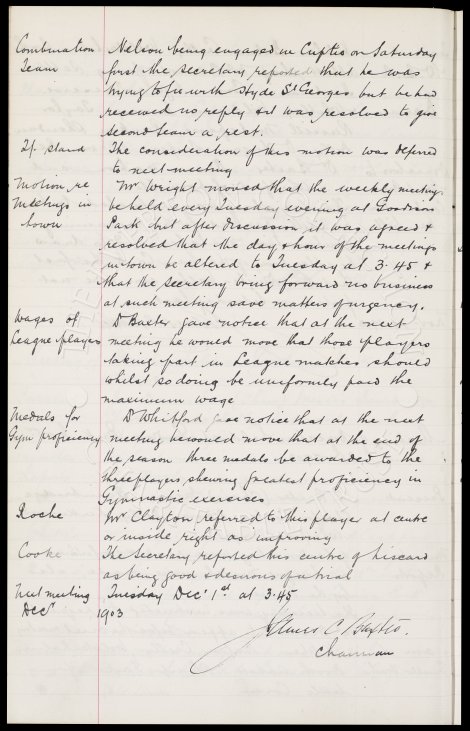 Combination Team
Nelson being engaged in Cupties on Saturday
first the secretary reported that he was
trying to fix with Hyde St Georges but he had
received no reply & it was resolved to give
second team a rest.
The consideration of this motion was deferred
to next meeting
Motion re Meetings in town
Mr Wright moved that the weekly meetings
be held every Tuesday evening at Goodison
Park but after discussion it was agreed &
resolved that the day & hour of the meetings
in town be altered to Tuesday at 3.45 &
that the secretary bring forward no business
at such meeting save matters of urgency.
Wages of League players
Dr Baxter gave notice that at the next
meeting he would move that those players
taking part in League matches should
whilst so doing be uniformly paid the
maximum wage
Medals for Gym proficiency
Dr Whitford gave notice that at the next
meeting he would move that at the end of
the season three medals be awarded to the
three players shewing greatest proficiency in
Gymnastic exercises
Roche
Mr Clayton referred to this player at centre
or inside right as improving
Cooke
The Secretary reported this centre of Liscard
as being good & desirous of a trial
Next meeting
Tuesday Decr 1st at 3.45
Decr 1903
James C. Baxter.
Chairman